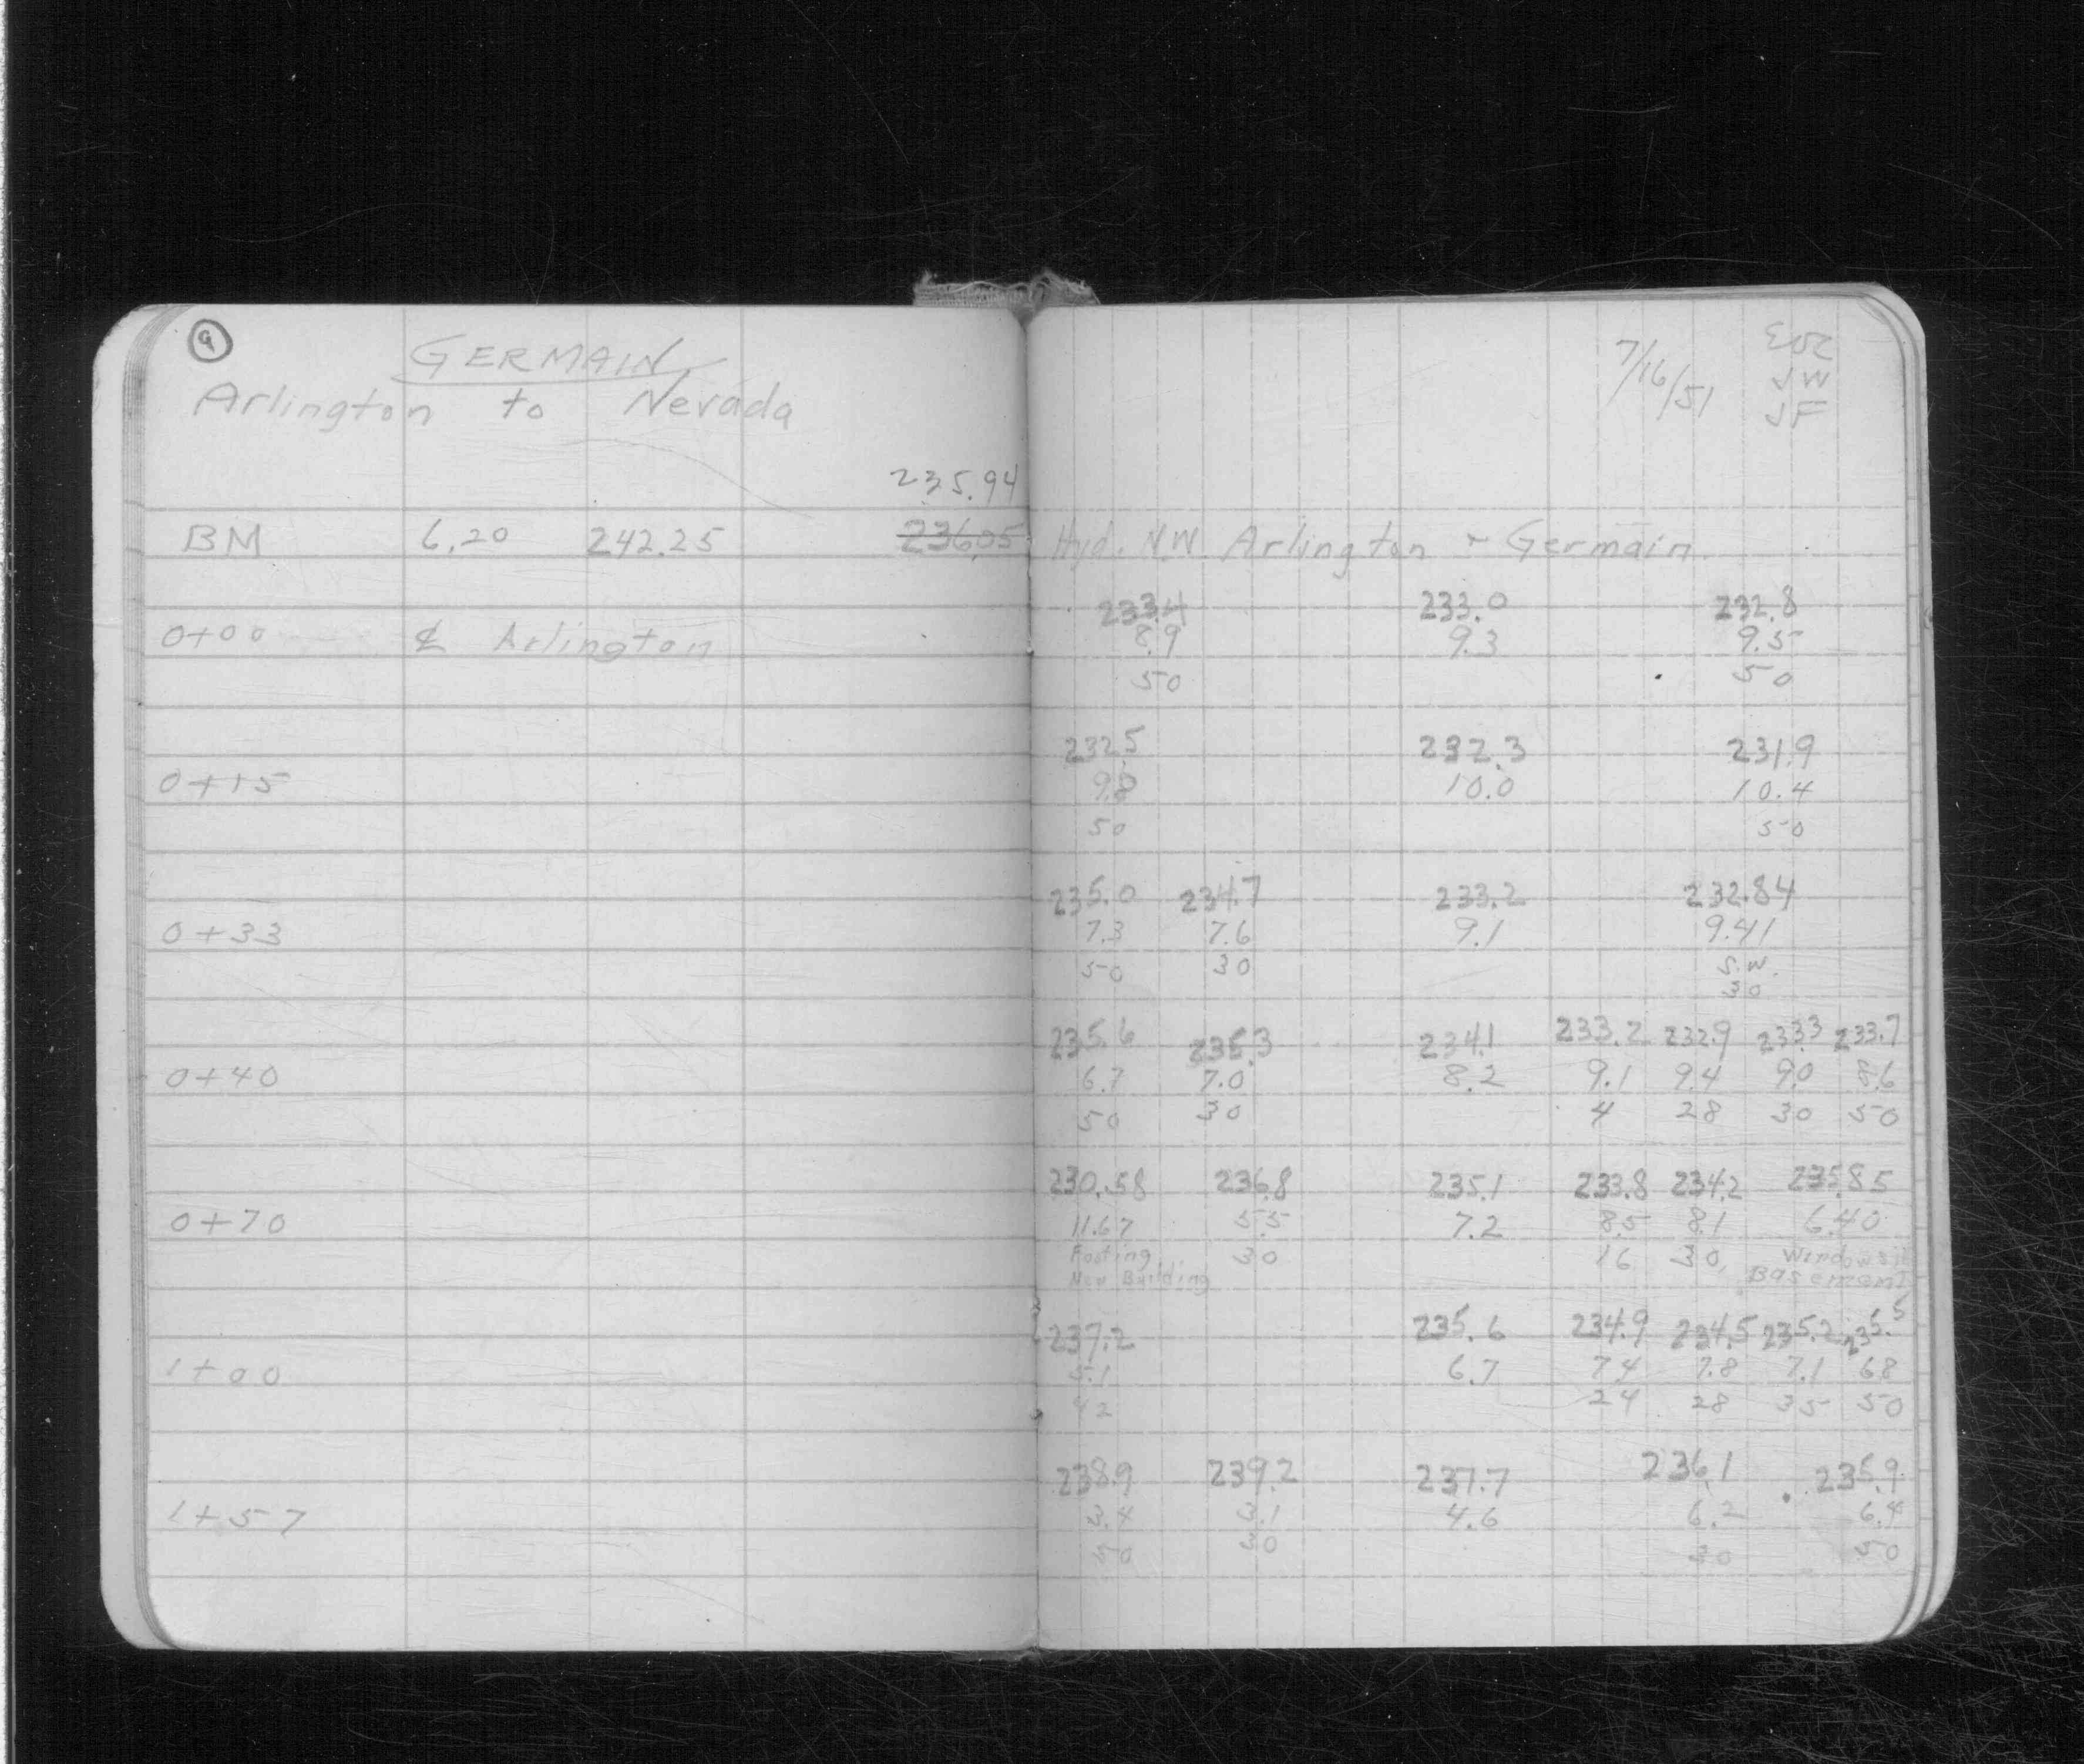 9
GERMAIN
Arlington to Nevada
235.94
BM 6.20 242.25 236.05
0+00 ℄ Arlington
0+15
0+33
0+40
0+70
1+00
1+57
7/16/51
JW
JF
Hyd. N.W. Arlington + Germain
233.4 233.0 232.8
8.9 9.3 9.5
50 50
232.5 232.3 231.9
9.8 10.0 10.4
50 50
235.0 234.7 233.2 232.84
7.3 7.6 9.1 9.41
50 30 S.W.
30
235.6 235.3 234.1 233.2 232.9 233.3 233.7
6.7 7.0 8.2 9.1 9.4 9.0 8.6
50 30 4 28 30 50
230.58 236.8 235.1 233.8 234.2 235.85
11.67 5.5 7.2 8.5 8.1 6.40
Footing 30 16 30 Windowsill
New Building Basement
237.2 235.6 234.9 234.5 235.2 235.5
5.1 6.7 7.4 7.8 7.1 6.8
42 24 28 35 50
238.9 239.2 237.7 236.1 235.9
3.4 3.1 4.6 6.2 6.4
50 30 30 50